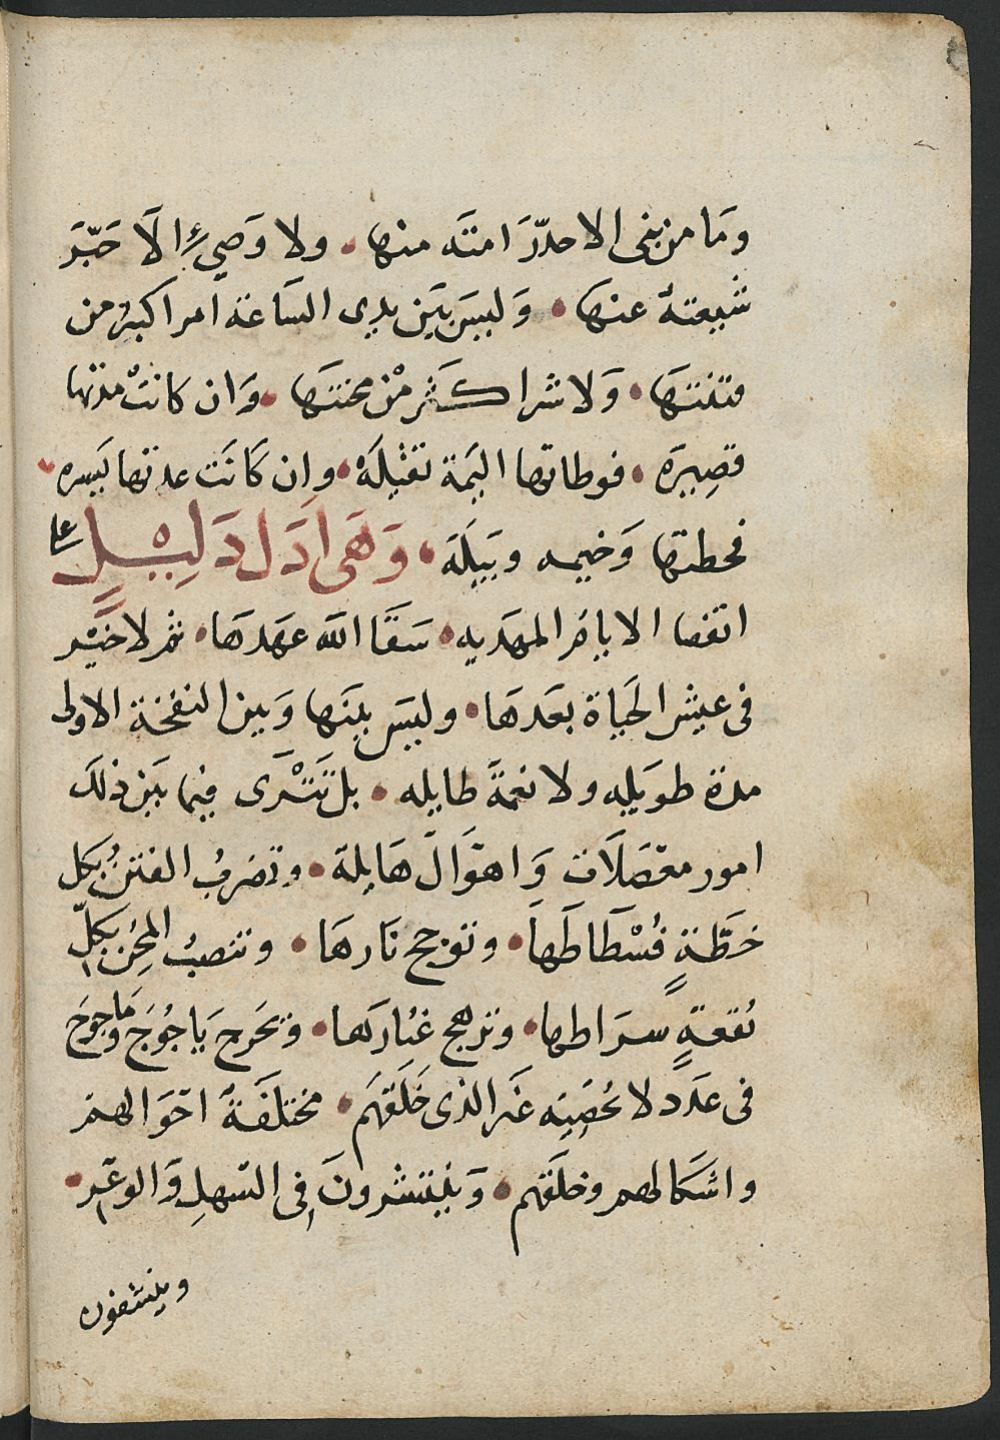 ومَا من نبى الا حدّرَ امتَه منها • ولا وَصيءٍ الَا خَبّرَ
شيعتهُ عنهَا • وَليسَ بيَن يدى السَاعَة امر اكبر من
فتنتهَا • وَلا شرا كثر مْن محنتهَا • وَان كانتْ مدتها
قصِيرَه • فوطاتها اليمَة ثقيْلَهْ • وان كَانَت عدتها يَسِره •
فحطتها وَخيمه وبَيلَه • وَهىَ اَدَل دَليْلٍ على
انقضا الايام المهَديه • سَقَا اللَه عهَدهَا • ثم لا خيْر
فى عيش الحَياة بعَدهَا • وليسَ بينَها وَبين النفخة الاولى
مدة طويَله ولا نعمَة طايله • بل تَتْرَى فيما بَين ذلكَ
امور معْضلَات وَاهوَال هَايلة • وتضربُ الفتنُ بكل
خطّةٍ فُسْطَاطَهاَ • وتوجج نَارهَا • وتنصبُ المِحُن بكلّ
بُقعةٍ سرَاطها • وترهج غبُارَها • وتخَرجَ يَاجُوجَ ومَاجوجَ
فى عدَد لا يُحْصِيه غَير الذى خَلَقهَم • مختلَفَةً احوَالهم
واشكَالهم وخلَقهم • وَينتشرونَ فى السّهلِ وَالوعَر •
وينشفون